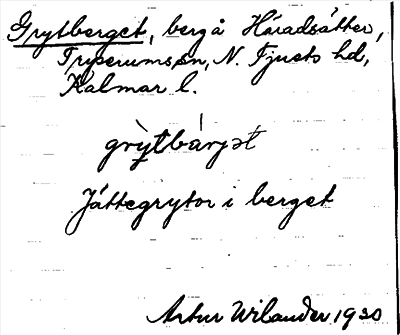 Grytberget, berg å Häradsätter,
Tryserums sn, N. Tjusts hd,
Kalmar l.
grỳtbárjət
Jättegrytor i berget
Artur Wilander 1930